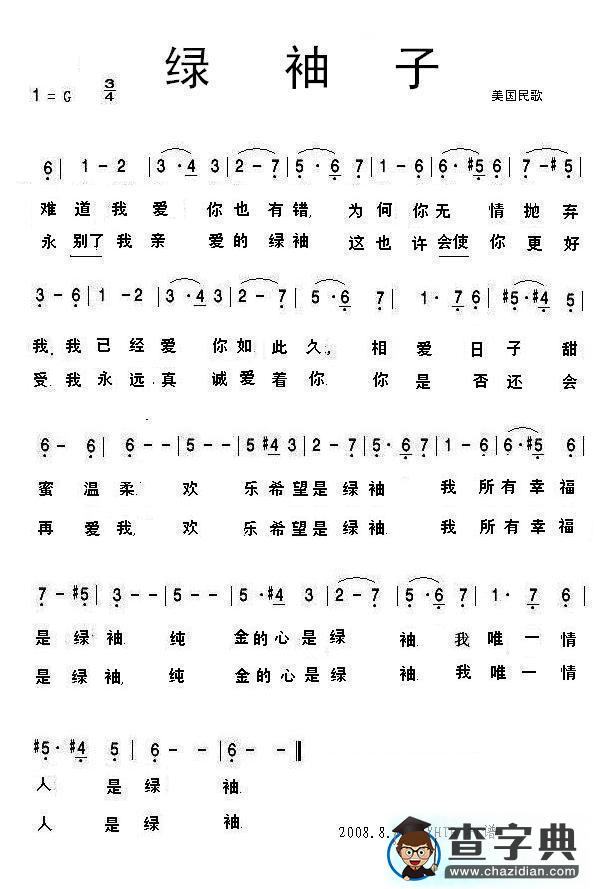 绿 袖 子
1 = G 3/4 美国民歌
6 | 1 - 2 | 3 · 4 3 | 2 - 7 | 5 · 6 7 | 1 - 6 | 6 · #5 6 | 7 - #5 |
难 道 我 爱 你 也 有 错, 为 何 你 无 情 抛 弃
永 别了 我 亲 爱 的 绿 袖 这 也 许 会使 你 更 好
3 - 6 | 1 - 2 | 3 · 4 3 | 2 - 7 | 5 · 6 7 | 1 · 7 6 | #5 · #4 5 |
我, 我 已 经 爱 你 如 此 久, 相 爱 日 子 甜
受, 我 永 远 真 诚 爱 着 你 你 是 否 还 会
6 - 6 | 6 - - | 5 - - | 5 #4 3 | 2 - 7 | 5 · 6 7 | 1 - 6 | 6 · #5 6 |
蜜 温 柔. 欢 乐 希 望 是 绿 袖 我 所 有 幸 福
再 爱 我, 欢 乐 希 望 是 绿 袖. 我 所 有 幸 福
7 - #5 | 3 - - | 5 - - | 5 · #4 3 | 2 - 7 | 5 · 6 7 | 1 · 7 6 |
是 绿 袖. 纯 金 的 心 是 绿 袖. 我 唯 一 情
是 绿 袖, 纯 金 的 心 是 绿 袖. 我 唯 一 情
#5 · #4 5 | 6 - - | 6 - ‖
人 是 绿 袖.
人 是 绿 袖.
2008.8. 谱
查字典
www.chazidian.com